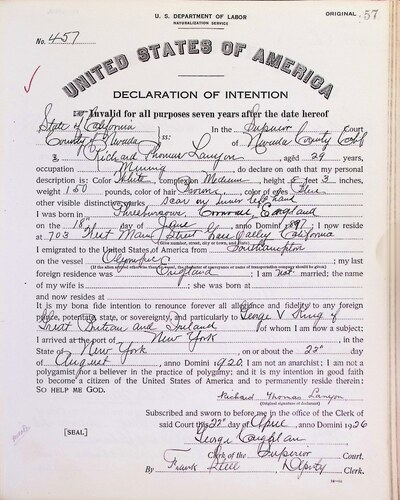 U. S. DEPARTMENT OF LABOR
NATURALIZATION SERVICE
ORIGINAL 57
No. 457
UNITED STATES OF AMERICA
DECLARATION OF INTENTION
Invalid for all purposes seven years after the date hereof
State of California
In the Superior Court
County of Nevada ss: of Nevada County Calif
I, Richard Thomas Lanyon, aged 29 years,
occupation Mining, do declare on oath that my personal
description is: Color White, complexion Medium, height 5 feet 3 inches,
weight 150 pounds, color of hair Brown, color of eyes Blue
other visible distinctive marks scar on inner left hand
I was born in Cornwall, England
on the 18th day of June, anno Domini 1897; I now reside
at 703 West Main Street Grass Valley California
(Give number, street, city or town, and State)
I emigrated to the United States of America from Southampton
on the vessel Olympic; my last
(If the alien arrived otherwise than by vessel, the character of conveyance or name of transportation company should be given)
foreign residence was England; I am not married; the name
of my wife is; she was born at
and now resides at
It is my bona fide intention to renounce forever all allegiance and fidelity to any foreign
prince, potentate, state, or sovereignty, and particularly to George V King of
Great Britain and Ireland, of whom I am now a subject;
I arrived at the port of New York, in the
State of New York, on or about the 22nd day
of August, anno Domini 1920; I am not an anarchist; I am not a
polygamist nor a believer in the practice of polygamy; and it is my intention in good faith
to become a citizen of the United States of America and to permanently reside therein:
SO HELP ME GOD.
Richard Thomas Lanyon
(Original signature of declarant)
Subscribed and sworn to before me in the office of the Clerk of
said Court this 22nd day of April, anno Domini 1926
[SEAL]
George Coughlan
Clerk of the Superior Court.
By Frank Steel, Deputy Clerk.